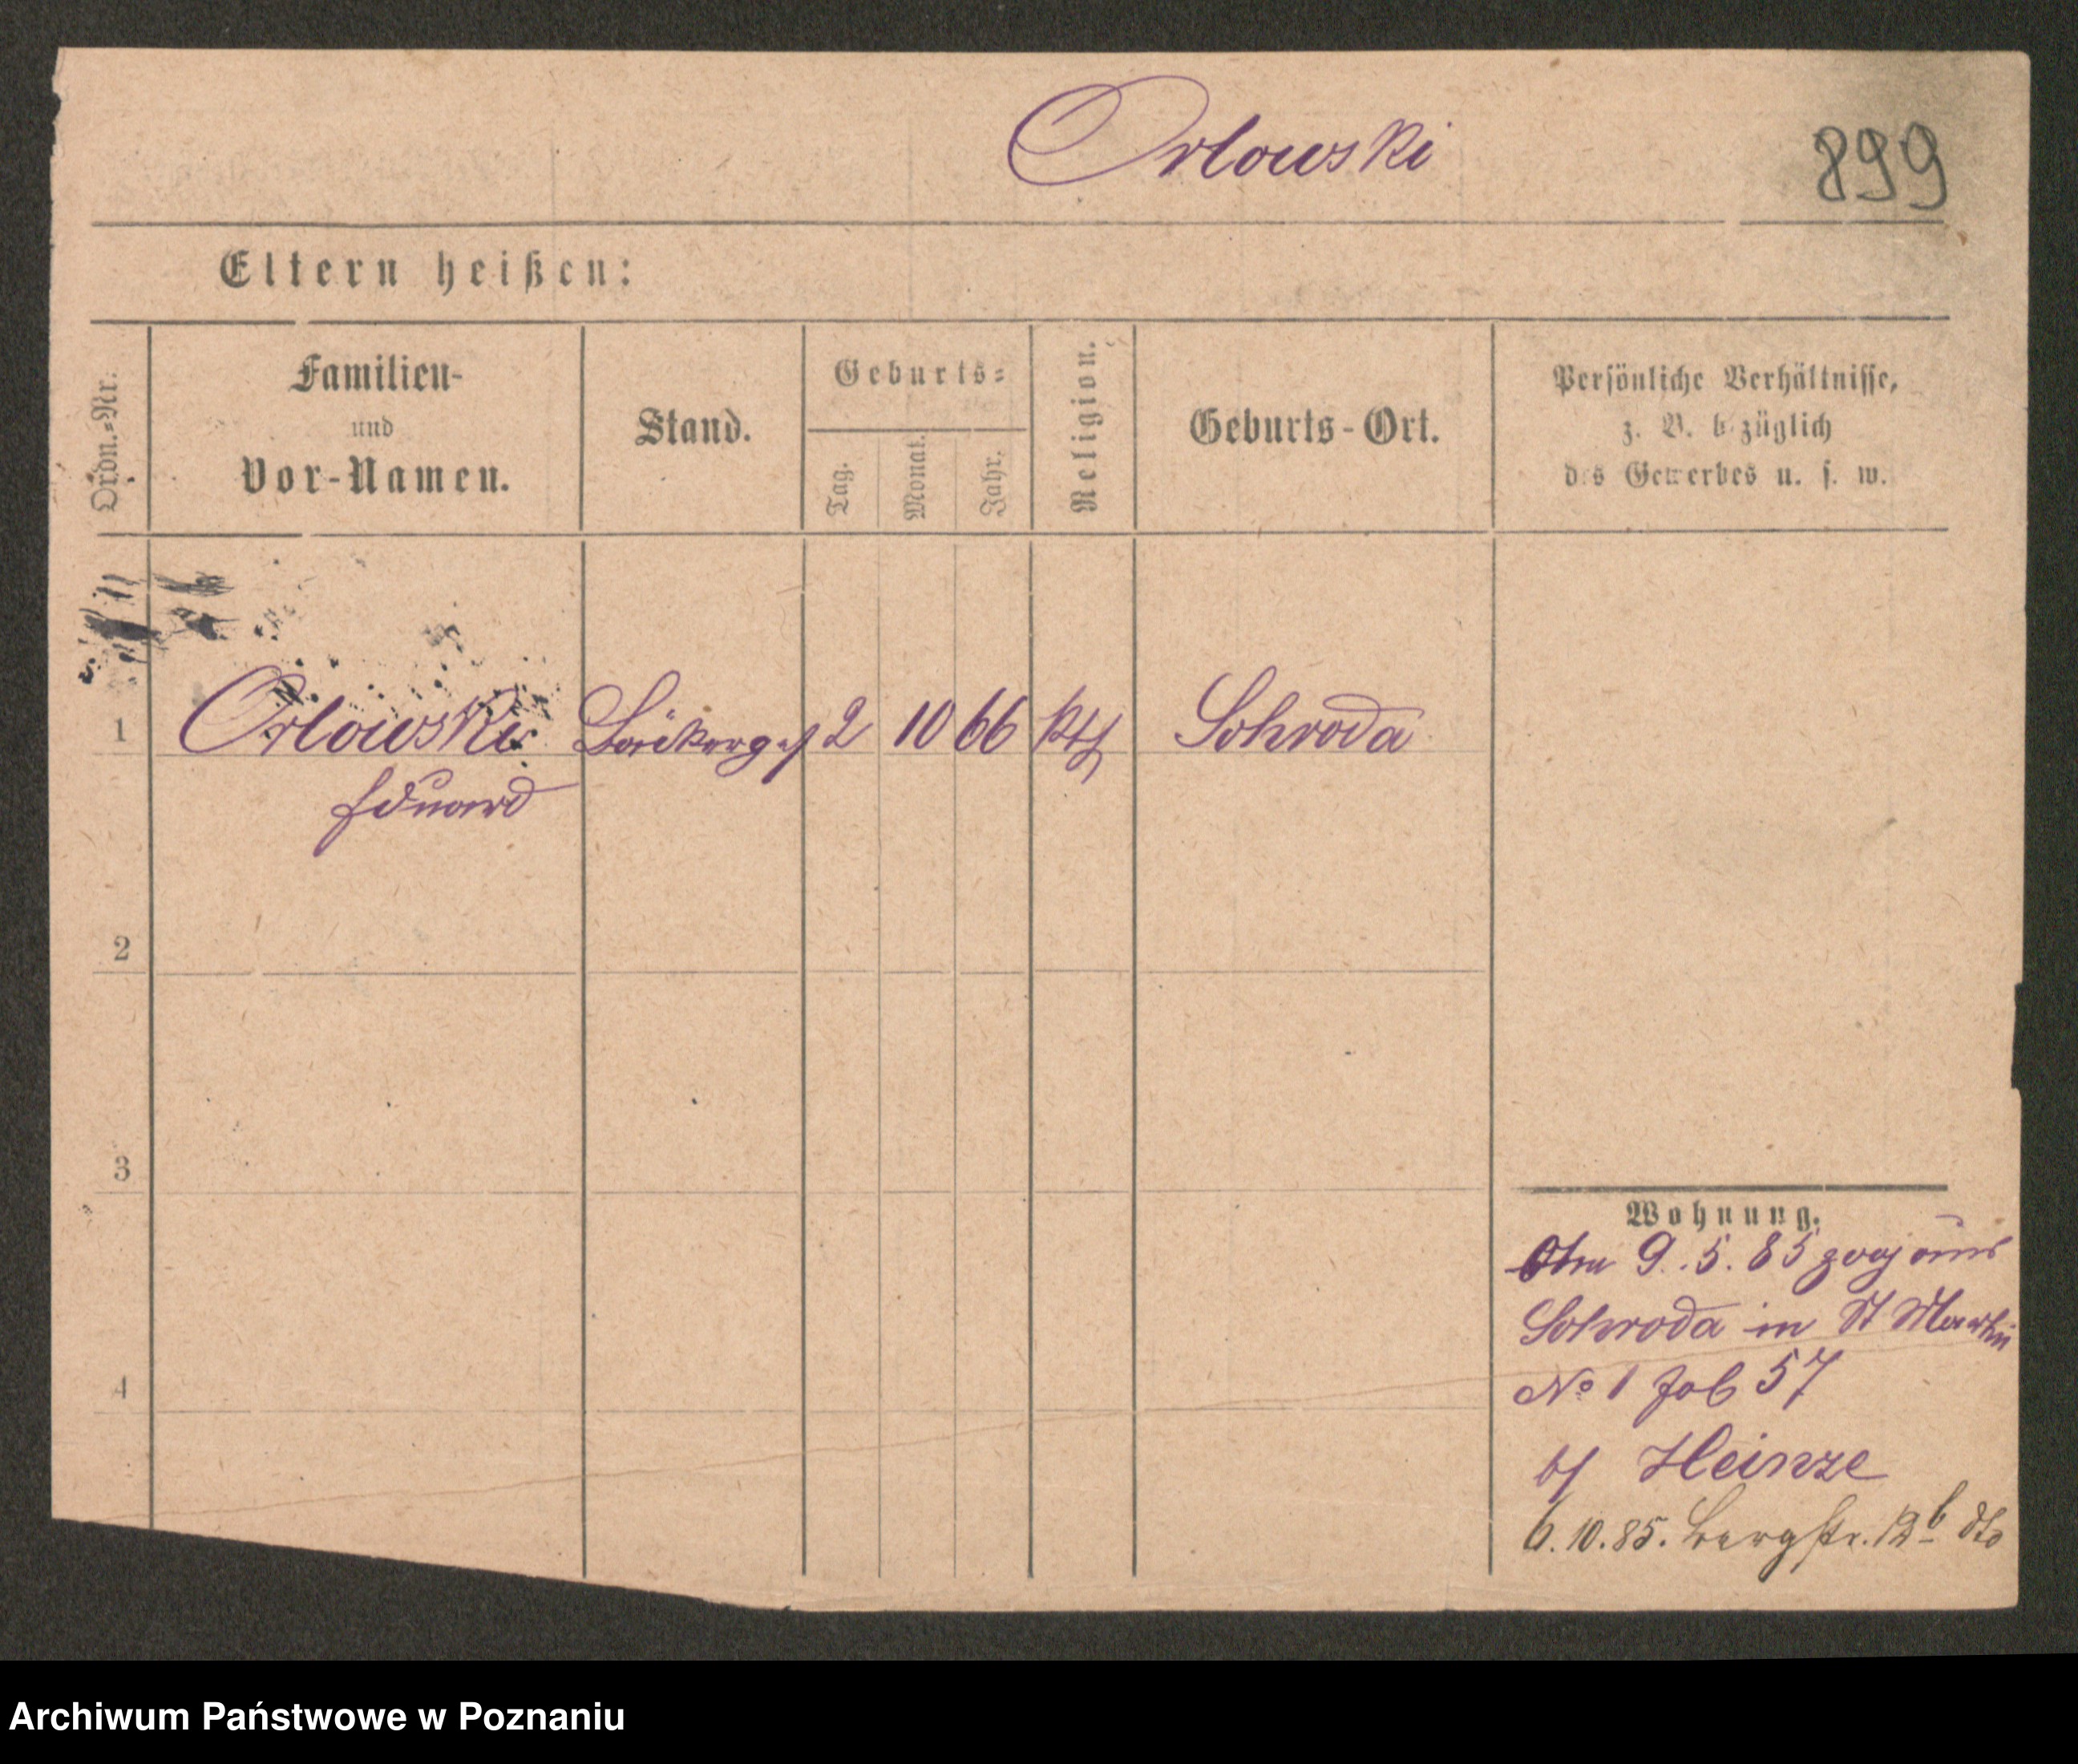 Orlowski
899
Eltern heißen:
Ordn.-Nr.
Familien-
und
Vor-Namen.
Stand.
Geburts-
Tag.
Monat.
Jahr.
Religion.
Geburts-Ort.
Persönliche Verhältnisse,
z. B. bezüglich
des Gewerbes u. s. w.
1 Orlowski Bäckerges 2 10 66 kth Schroda
Eduard
2
3
4
Wohnung.
Am 9.5.85 zugz aus
Schroda in St Martin
No 1 Job 57
b/ Heinze
6.10.85. Bergstr. 12b dto
Archiwum Państwowe w Poznaniu